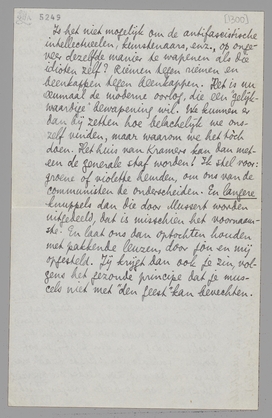 5249
[300]
Is het niet mogelijk om de antifascistische
intellectueelen, kunstenaars, enz, op onge-
veer dezelfde manier te wapenen als die
idioten zelf? Riemen tegen riemen en
beenkappen tegen beenkappen. Het is nu
eenmaal de moderne oorlog, die een gelijk-
waardige bewapening wil. We kunnen er
dan bij zetten hoe belachelijk we ons-
zelf vinden, maar waarom we het tòch
doen. Het huis van Kramers kan dan met-
een de generale staf worden! Ik stel voor:
groene of violette hemden, om ons van de
communisten te onderscheiden. En langere
knuppels dan die door Mussert worden
uitgedeeld, dat is misschien het voornaam-
ste. En laat ons dan optochten houden
met pakkende leuzen, door jou en mij
opgesteld. Jij krijgt dan ook je zin, vol-
gens het gezonde principe dat je mus-
cels niet met "den geest" kan bevechten.